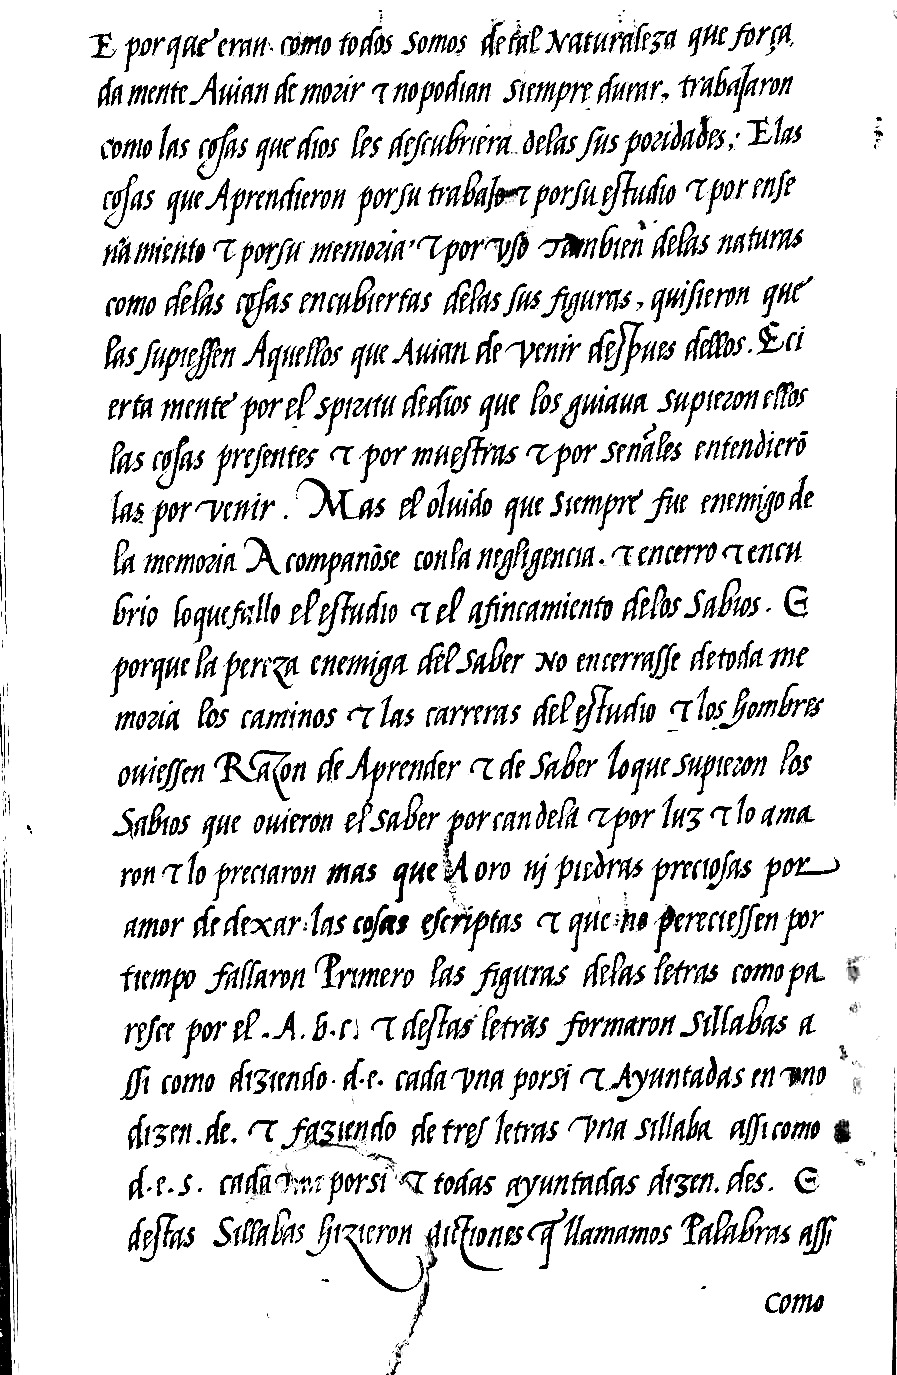 E porque eran como todos somos de tal Naturaleza que força
da mente Auian de morir τ no podian siempre durar, trabajaron
como las cosas que dios les descubriera delas sus poridades; E las
cosas que Aprendieron por su trabajo τ por su estudio τ por ense
ñamiento τ por su memoria τ por vso Tambien delas naturas
como delas cosas encubiertas delas sus figuras, quisieron que
las supiessen Aquellos que Auian de venir despues dellos. E ci
erta mente por el spiritu de dios que los guiaua supieron ellos
las cosas presentes τ por muestras τ por señales entendierõ
las por venir. Mas el oluido que siempre fue enemigo de
la memoria Acompañose con la negligencia. τ encerro τ encu
brio lo que fallo el estudio τ el afincamiento delos Sabios. E
porque la pereza enemiga del Saber No encerrasse de toda me
moria los caminos τ las carreras del estudio τ los hombres
ouiessen Razon de Aprender τ de Saber lo que supieron los
Sabios que ouieron el saber por candela τ por luz τ lo ama
ron τ lo preciaron mas que A oro nj piedras preciosas por
amor de dexar las cosas escriptas τ que no pereciessen por
tiempo fallaron Primero las figuras delas letras como pa
resce por el .A.b.c. τ destas letras formaron Sillabas a
ssi como diziendo .d.e. cada vna por si τ Ayuntadas en vno
dizen .de. τ faziendo de tres letras vna sillaba assi como
d.e.s. cada vna por si τ todas ayuntadas dizen .des. E
destas Sillabas hizieron dictiones q̃ llamamos Palabras assi
como